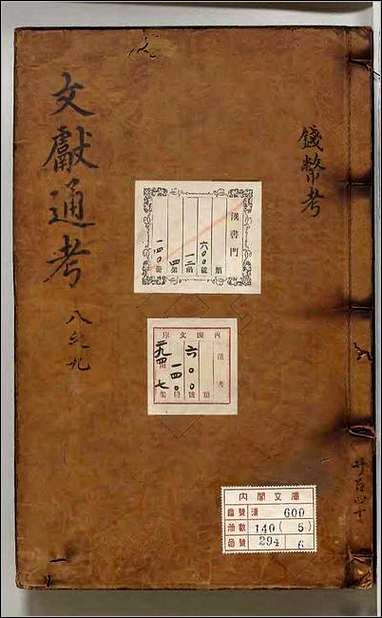 文獻通考 八之九
錢幣考
共百四十
漢書門
六〇〇號
一二函
四架
一四〇冊
內閣文庫
漢書
六〇〇號
一四〇
內閣文庫
番號 漢 600
冊數 140 ( 5 )
函號 294 6